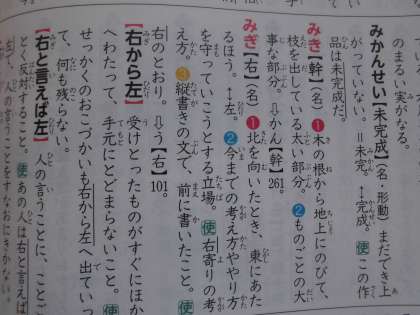 のまるい実がなる。
みかんせい【未完成】(名・形動)まだでき上
がっていない。＝未完。↔完成。使この作
品は未完成だ。
みき【幹】(名)❶木の根から地上にのびて、
枝を出している太い部分。❷ものごとの大
事な部分。⇩かん【幹】261。
みぎ【右】(名)❶北を向いたとき、東にあた
るほう。↔左。❷今までの考え方ややり方
を守っていこうとする立場。使右寄りの考
え方。❸縦書きの文で、前に書いたこと。使
右のとおり。⇩う【右】101。
【右から左】受けとったものがすぐにほか
へわたって、手元にとどまらないこと。使
せっかくのおこづかいも右から左へ出ていっ
て、何も残らない。
【右と言えば左】人の言うことに、ことご
とく反対すること。使あの人は右と言えば
左で、人の言うことをすなおにきかない。